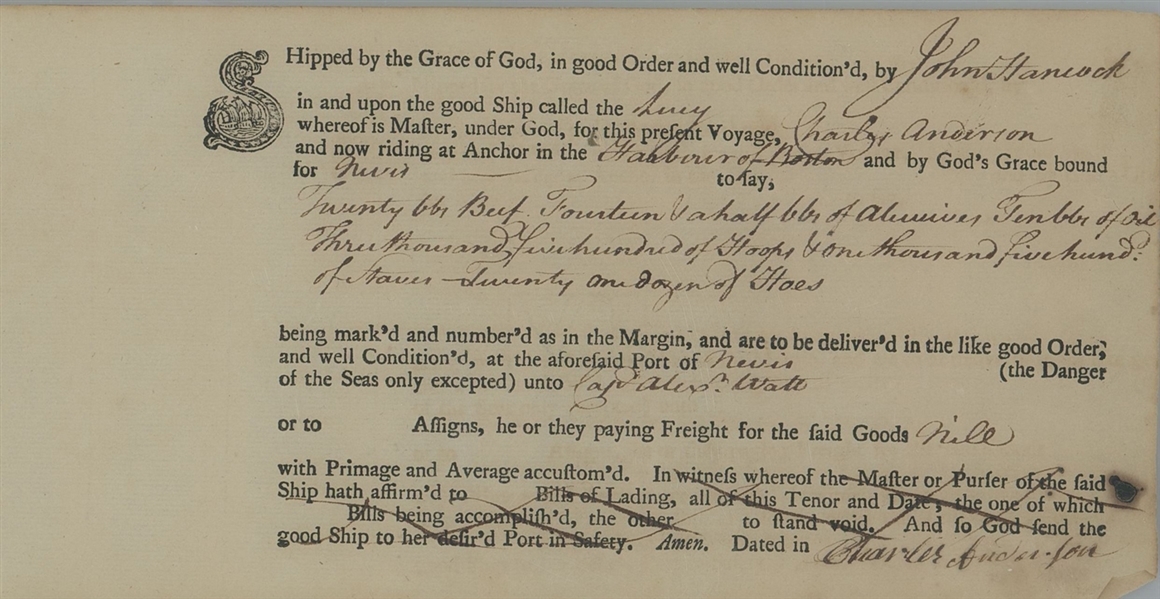 SHipped by the Grace of God, in good Order and well Condition'd, by John Hancock
in and upon the good Ship called the Lucy
whereof is Maſter, under God, for this preſent Voyage, Charles Anderson
and now riding at Anchor in the Harbour of Boston and by God's Grace bound
for Nevis to ſay,
Twenty bbs Beef Fourteen & a half bbs of Alewives Ten bbs of Oil
Three thousand five hundred of Hoops & one thousand five hund:d
of Staves - Twenty one dozen of Hoes
being mark'd and number'd as in the Margin, and are to be deliver'd in the like good Order,
and well Condition'd, at the aforeſaid Port of Nevis (the Danger
of the Seas only excepted) unto Capt Alexr. Watt
or to Aſſigns, he or they paying Freight for the ſaid Goods Nill
with Primage and Average accuſtom'd. In witneſs whereof the Maſter or Purſer of the ſaid
Ship hath affirm'd to Bills of Lading, all of this Tenor and Date, the one of which
Bills being accompliſh'd, the other to ſtand void. And ſo God ſend the
good Ship to her deſir'd Port in Safety. Amen. Dated in Charles Anderson